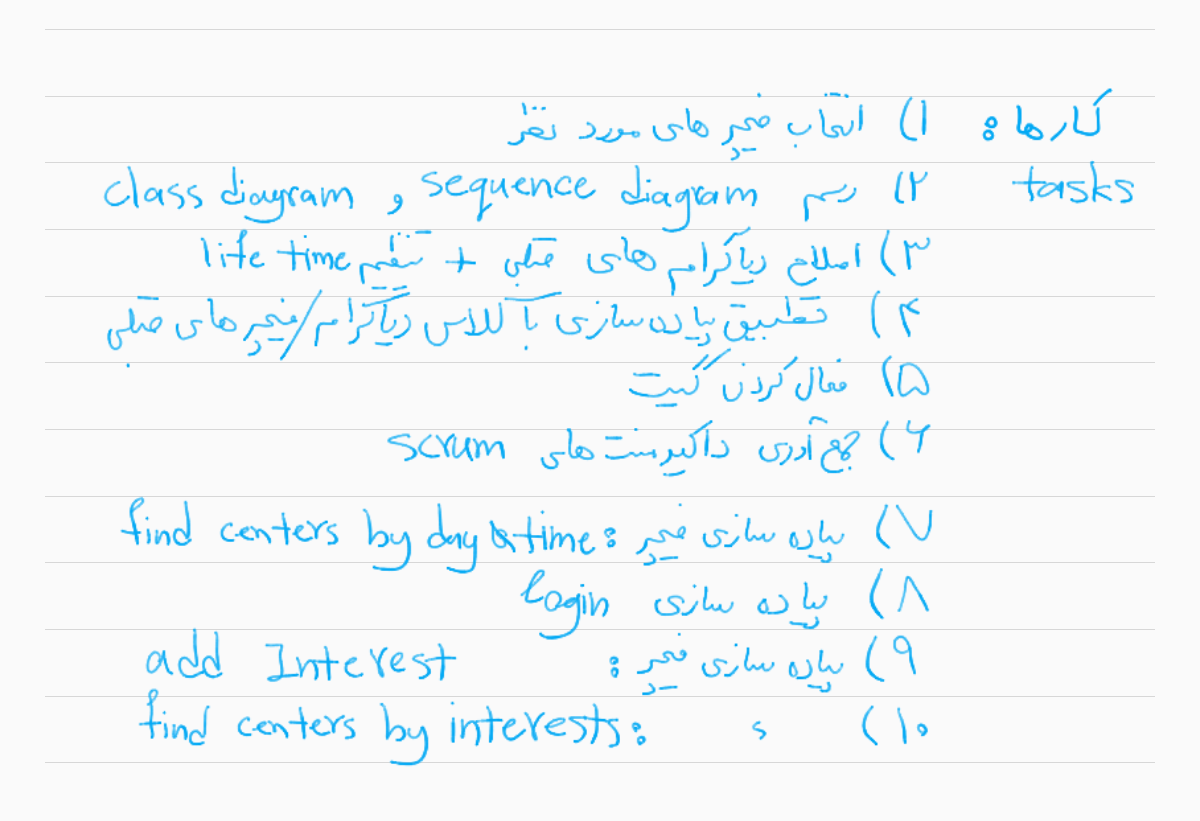 کارها: ۱) انتخاب فیچرهای مورد نظر
tasks ۲) رسم sequence diagram و class diagram
۳) اصلاح دیاگرام های قبلی + تنظیم life time
۴) تطبیق پیاده سازی با کلاس دیاگرام/فیچرهای قبلی
۵) فعال کردن گیت
۶) جمع آوری داکیومنت های scrum
۷) پیاده سازی فیچر: find centers by day & time
۸) پیاده سازی login
۹) پیاده سازی فیچر: add Interest
۱۰) ء : find centers by interests